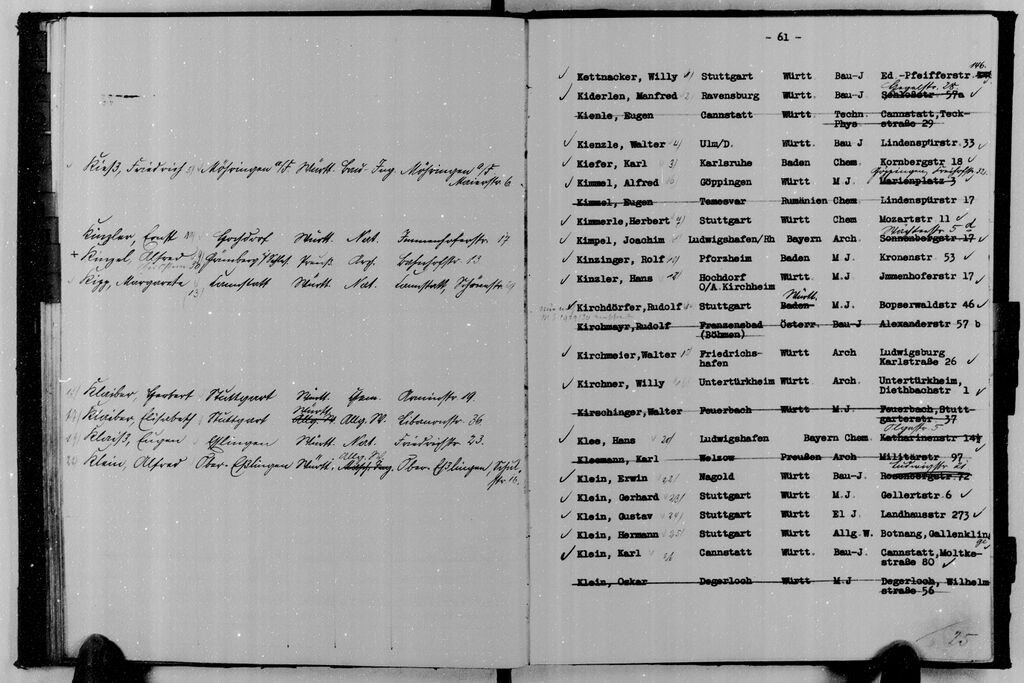 Kieß, Friedrich Möhringen a/F Württ. Bau-Ing Möhringen a/F
Maierstr. 6
Kinzler, Ernst Hochdorf Württ. Nat. Immenhoferstr. 17
+ Kinzel, Alfred Grünberg i/Schles. Preuß. Bahnhofstr. 13
Kipp, Margarete Cannstatt Württ. Nat. Cannstatt, Schönestr.
Klaiber, Herbert Stuttgart Württ. Chem. Römerstr. 19.
Württ.
Klaiber, Elisabeth Stuttgart Allg. W. Libanonstr. 36.
Klaiß, Eugen Eßlingen Württ. Nat. Friedrichstr. 23.
Allg. W.
Klein, Alfred Ober-Eßlingen Württ. Ober-Eßlingen, Schul
str. 16.
- 61 -
146.
Kettnacker, Willy Stuttgart Württ Bau-J Ed.-Pfeifferstr
Hegelstr. 28.
Kiderlen, Manfred Ravensburg Württ. Bau-J Schloßstr 57a
Kienle, Eugen Cannstatt Württ. Techn. Cannstatt,Teck-
Phys straße 29
Kienzle, Walter 4) Ulm/D. Württ Bau-J Lindenspürstr. 33
Kiefer, Karl 3) Karlsruhe Baden Chem. Kornbergstr 18
Göppingen,
Kimmel, Alfred Göppingen Württ M J. Marienplatz 3
Kimmel, Eugen Temesvar Rumänien Chem Lindenspürstr 17
Kimmerle,Herbert Stuttgart Württ Chem Mozartstr 11
Kimpel, Joachim Ludwigshafen/Rh Bayern Arch. Sonnenbergstr 17
Kinzinger, Rolf Pforzheim Baden M J. Kronenstr 53
Kinzler, Hans Hochdorf Württ. M.J. Jmmenhoferstr 17
O/A.Kirchheim
Württ.
Kirchdörfer,Rudolf Stuttgart Baden M.J. Bopserwaldstr 46
Kirchmayr,Rudolf Franzensbad Österr. Bau-J Alexanderstr 57 b
(Böhmen)
Kirchmeier,Walter Friedrichs- Württ Arch Ludwigsburg
hafen Karlstraße 26
Kirchner, Willy Untertürkheim Württ Arch. Untertürkheim,
Diethbachstr 1
Kirschinger,Walter Feuerbach Württ M.J. Feuerbach,Stutt-
garterstr 37
Olgastr. 5
Klee, Hans 20) Ludwigshafen Bayern Chem. Katharinenstr
Kleemann, Karl Welzow Preußen Arch Militärstr 97
Ludwigstr. 21
Klein, Erwin 22) Nagold Württ Bau-J. Rosenbergstr 72
Klein, Gerhard 23) Stuttgart Württ M.J. Gellertstr 6
Klein, Gustav 24) Stuttgart Württ El J. Landhausstr 273
Klein, Hermann 25) Stuttgart Württ Allg W. Botnang,Gallenklin
ge
Klein, Karl 26 Cannstatt Württ. Bau-J. Cannstatt,Moltke-
straße 80
Klein, Oskar Degerloch Württ M.J Degerloch, Wilhelm
straße 56
25